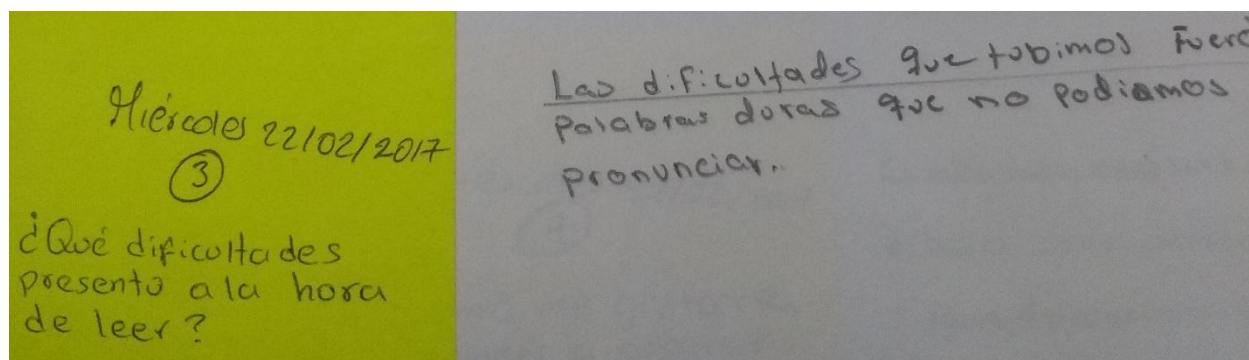 Miércoles 22/02/2017
3
¿Qué dificultades
presento a la hora
de leer?
Las dificultades que tubimos
palabras duras que no podiamos
pronunciar.